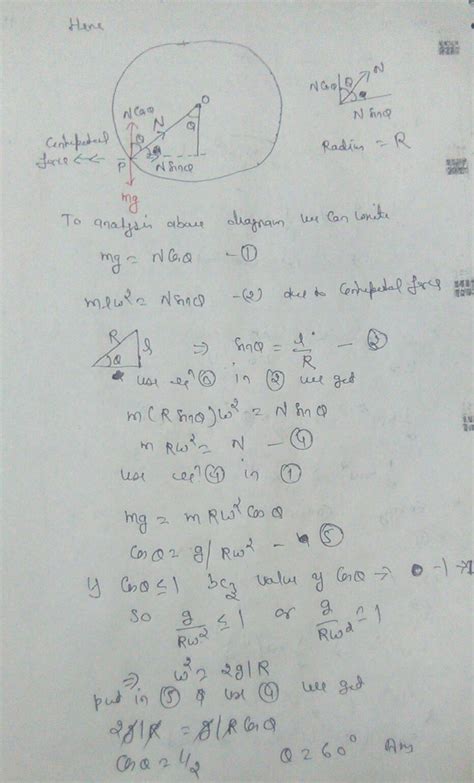 Here
O
NCosθ
N
θ
NCosθ
θ
N
θ
N Sinθ
Centripetal
force
P
NSinθ
mg
Radius = R
To analysis above diagram we can write
mg = NCosθ - ①
mlω² = NSinθ -(2) due to Centripetal force
R
l
θ
⇒ Sinθ = l/R -
use eqⁿ in ② we get
m(RSinθ)ω² = NSinθ
mRω² = N - ④
use eqⁿ ④ in ①
mg = mRω²Cosθ
Cosθ = g/Rω² - ⑤
If Cosθ ≤ 1 bcz value of Cosθ →
So g/Rω² ≤ 1 or g/Rω² = 1
⇒ ω² = 2g/R
put in ⑤ & use ④ we get
2g/R = g/RCosθ
Cosθ = 1/2 θ = 60° Ans